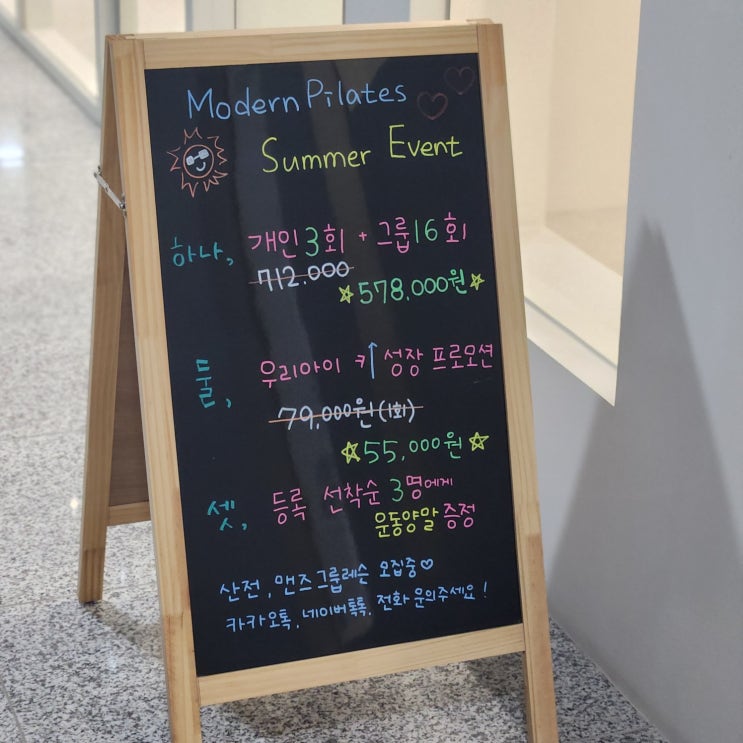 Modern Pilates
Summer Event
하나, 개인 3회 + 그룹 16회
712.000
578.000원
둘, 우리아이 키 성장 프로모션
79,000원(1회)
55,000원
셋, 등록 선착순 3명에게
운동양말 증정
산전, 맨즈 그룹레슨 모집중♡
카카오톡, 네이버톡톡, 전화 문의주세요!